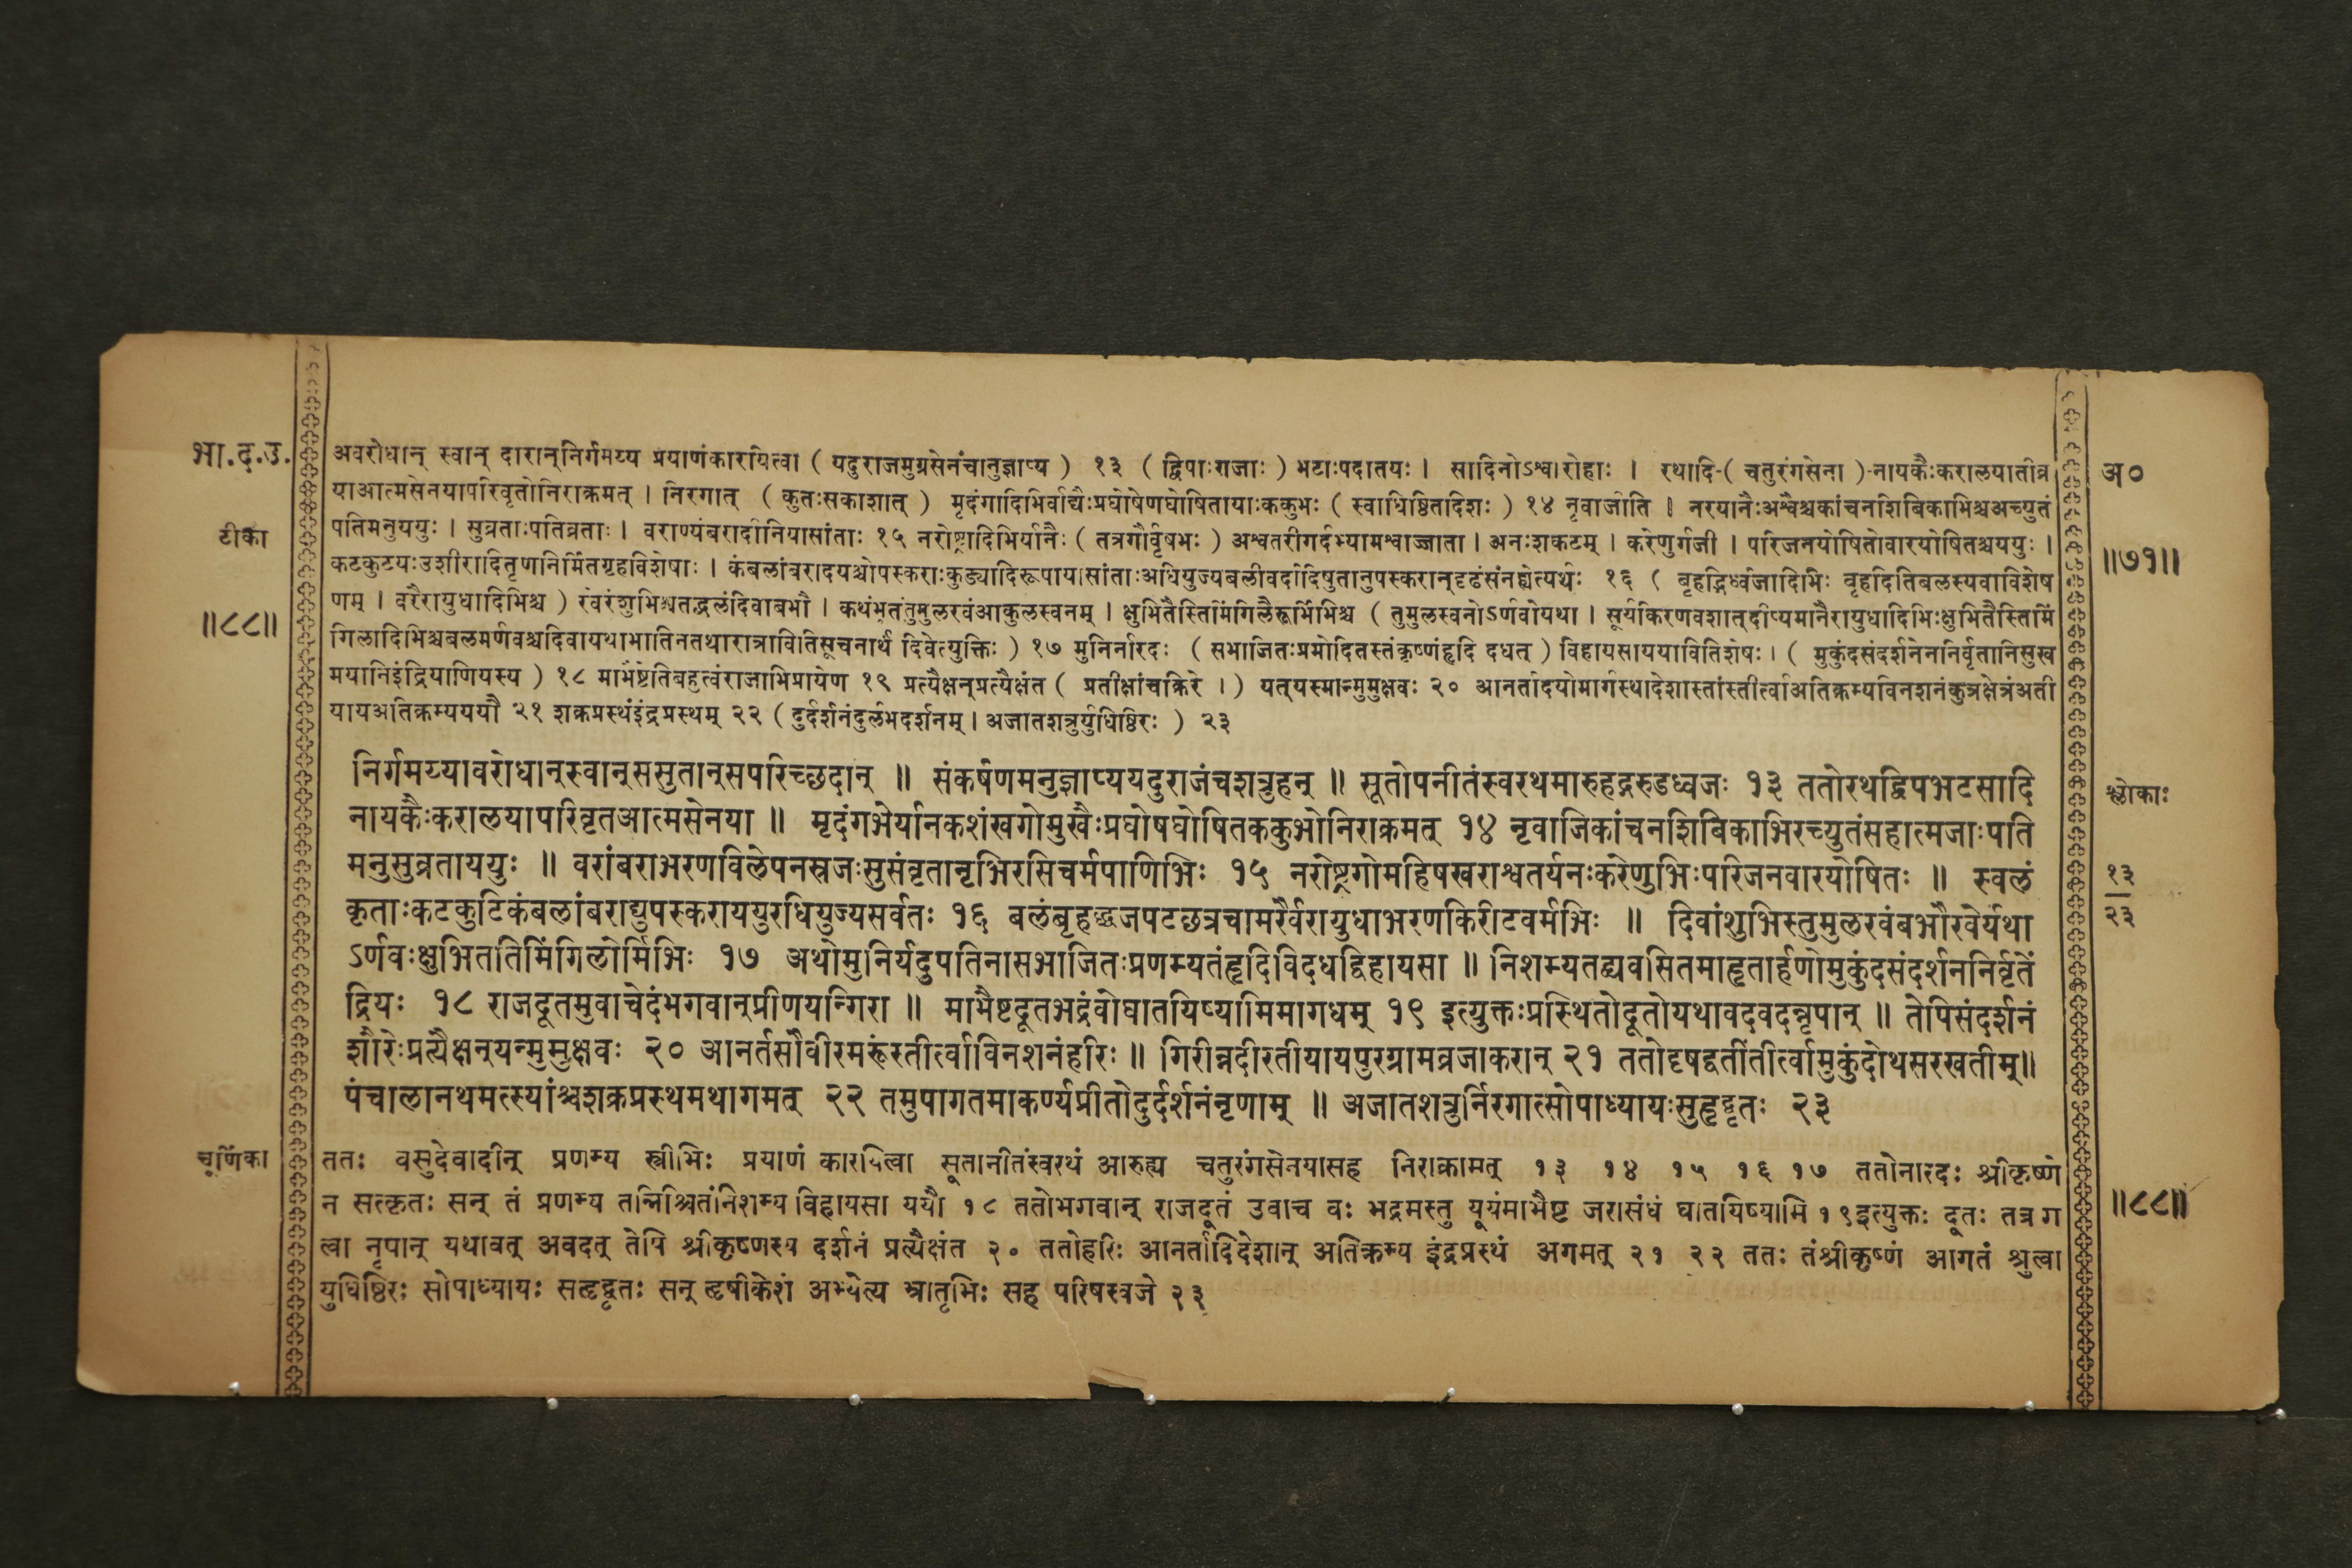 भा.द.उ.
अवरोधान् स्वान् दारान्निर्गमय्य प्रयाणंकारयित्वा ( यदुराजमुग्रसेनंचानुज्ञाप्य ) १३ ( द्विपाःगजाः ) भटाःपदातयः । सादिनोऽश्वारोहाः । रथादि-( चतुरंगसेना )-नायकैःकरालयातीव्र
याआत्मसेनयापरिवृतोनिराक्रमत् । निरगात् ( कुतःसकाशात् ) मृदंगादिभिर्वाद्यैःप्रघोषेणघोषितायाःककुभः ( स्वाधिष्ठितादिशः ) १४ नृवाजीति । नरयानैःअश्वैश्चकांचनशिबिकाभिश्चअच्युतं
पतिमनुययुः । सुव्रताःपतिव्रताः । वराण्यंबरादीनियासांताः १५ नरोष्ट्रादिभिर्यानैः ( तत्रगौर्वृषभः ) अश्वतरीगर्दभ्यामश्वाज्जाता । अनःशकटम् । करेणुर्गजी । परिजनयोषितोवारयोषितश्चययुः ।
कटकुटयःउशीरादितृणनिर्मितगृहविशेषाः । कंबलांबरादयश्चोपस्कराःकुड्यादिरूपायासांताःअधियुज्यबलीवर्दादिषुतानुपस्करान्दृढंसंनह्येत्यर्थः १६ ( बृहद्भिर्ध्वजादिभिः बृहदितिबलस्यवाविशेष
णम् । वरैरायुधादिभिश्च ) रवेरंशुभिश्चतद्बलंदिवाबभौ । कथंभूतंतुमुलरवंआकुलस्वनम् । क्षुभितैस्तिमिंगिलैरूर्मिभिश्च ( तुमुलस्वनोऽर्णवोयथा । सूर्यकिरणवशात्दीप्यमानैरायुधादिभिःक्षुभितैस्तिमिं
गिलादिभिश्चबलमर्णवश्चदिवायथाभातिनतथारात्रावितिसूचनार्थं दिवेत्युक्तिः ) १७ मुनिर्नारदः ( सभाजितःप्रमोदितस्तंकृष्णंहृदि दधत् ) विहायसाययावितिशेषः । ( मुकुंदसंदर्शनेननिर्वृतानिसुख
मयानिइंद्रियाणियस्य ) १८ माभैष्टेतिबहुत्वंराजाभिप्रायेण १९ प्रत्यैक्षन्प्रत्यैक्षंत ( प्रतीक्षांचक्रिरे । ) यत्यस्मान्मुमुक्षवः २० आनर्तादयोमार्गस्थादेशास्तांस्तीर्त्वाअतिक्रम्यविनशनंकुरुक्षेत्रंअती
यायअतिक्रम्यययौ २१ शक्रप्रस्थंइंद्रप्रस्थम् २२ ( दुर्दर्शनंदुर्लभदर्शनम् । अजातशत्रुर्युधिष्ठिरः ) २३
टीका
॥८८॥
अ०
॥७१॥
निर्गमय्यावरोधान्स्वान्ससुतान्सपरिच्छदान् ॥ संकर्षणमनुज्ञाप्ययदुराजंचशत्रुहन् ॥ सूतोपनीतंस्वरथमारुहद्गरुडध्वजः १३ ततोरथद्विपभटसादि
नायकैःकरालयापरिवृतआत्मसेनया ॥ मृदंगभेर्यानकशंखगोमुखैःप्रघोषघोषितककुभोनिराक्रमत् १४ नृवाजिकांचनशिबिकाभिरच्युतंसहात्मजाःपति
मनुसुव्रताययुः ॥ वरांबराभरणविलेपनस्रजःसुसंवृतानृभिरसिचर्मपाणिभिः १५ नरोष्ट्रगोमहिषखराश्वतर्यनःकरेणुभिःपरिजनवारयोषितः ॥ स्वलं
कृताःकटकुटिकंबलांबराद्युपस्कराययुरधियुज्यसर्वतः १६ बलंबृहद्ध्वजपटछत्रचामरैर्वरायुधाभरणकिरीटवर्मभिः ॥ दिवांशुभिस्तुमुलरवंबभौरवेर्यथा
ऽर्णवःक्षुभिततिमिंगिलोर्मिभिः १७ अथोमुनिर्यदुपतिनासभाजितःप्रणम्यतंहृदिविदधद्विहायसा ॥ निशम्यतद्व्यवसितमाहृतार्हणोमुकुंदसंदर्शननिर्वृतें
द्रियः १८ राजदूतमुवाचेदंभगवान्प्रीणयन्गिरा ॥ माभैष्टदूतभद्रंवोघातयिष्यामिमागधम् १९ इत्युक्तःप्रस्थितोदूतोयथावदवदन्नृपान् ॥ तेपिसंदर्शनं
शौरेःप्रत्यैक्षन्यन्मुमुक्षवः २० आनर्तसौवीरमरूंस्तीर्त्वाविनशनंहरिः ॥ गिरीन्नदीरतीयायपुरग्रामव्रजाकरान् २१ ततोदृषद्वतींतीर्त्वामुकुंदोथसरस्वतीम्॥
पंचालानथमत्स्यांश्चशक्रप्रस्थमथागमत् २२ तमुपागतमाकर्ण्यप्रीतोदुर्दर्शनंनृणाम् ॥ अजातशत्रुर्निरगात्सोपाध्यायःसुहृद्वृतः २३
श्लोकाः
१३
२३
चूर्णिका
ततः वसुदेवादीन् प्रणम्य स्त्रीभिः प्रयाणं कारयित्वा सूतानीतंस्वरथं आरुह्य चतुरंगसेनयासह निराक्रामत् १३ १४ १५ १६ १७ ततोनारदः श्रीकृष्णे
न सत्कृतः सन् तं प्रणम्य तन्निश्चितंनिशम्य विहायसा ययौ १८ ततोभगवान् राजदूतं उवाच वः भद्रमस्तु यूयंमाभैष्ट जरासंधं घातयिष्यामि १९इत्युक्तः दूतः तत्र ग
त्वा नृपान् यथावत् अवदत् तेपि श्रीकृष्णस्य दर्शनं प्रत्यैक्षंत २० ततोहरिः आनर्तादिदेशान् अतिक्रम्य इंद्रप्रस्थं अगमत् २१ २२ ततः तंश्रीकृष्णं आगतं श्रुत्वा
युधिष्ठिरः सोपाध्यायः सहृद्वृतः सन् हृषीकेशं अभ्येत्य भ्रातृभिः सह परिषस्वजे २३
॥८८॥